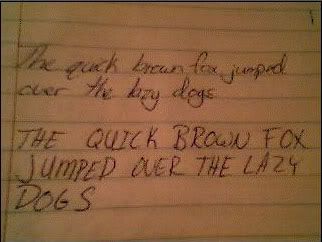 The quick brown fox jumped
over the lazy dogs
THE QUICK BROWN FOX
JUMPED OVER THE LAZY
DOGS